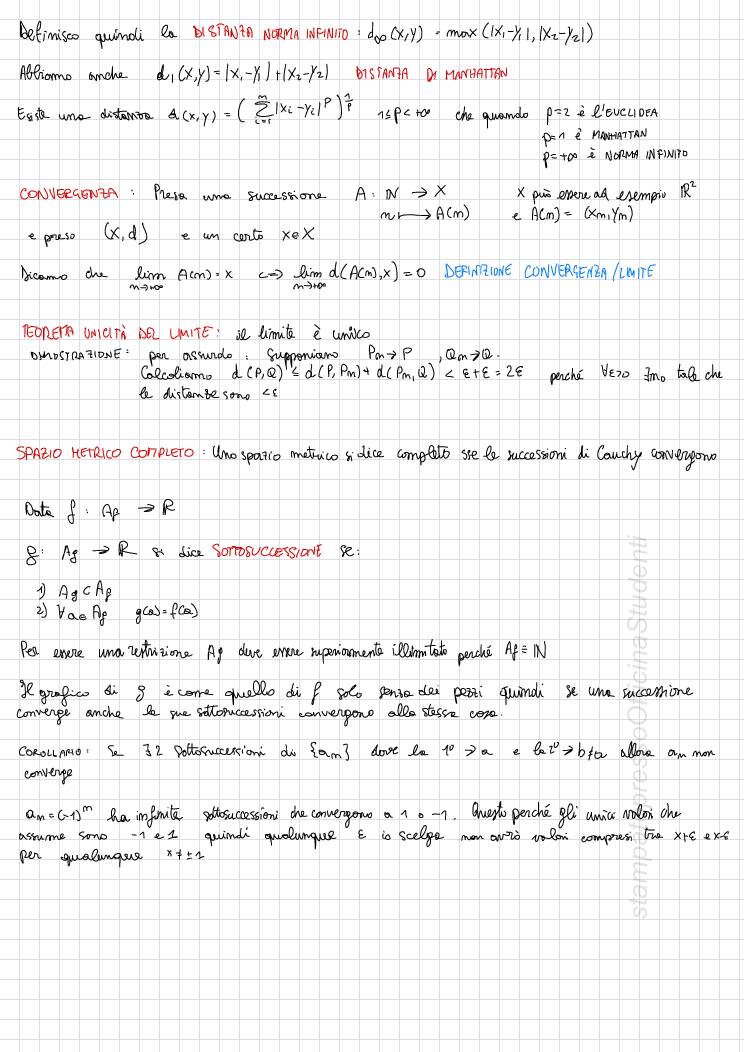 Definisco quindi la DISTANZA NORMA INFINITO : d∞(x,y) = max(|x₁-y₁|,|x₂-y₂|)
Abbiamo anche d₁(x,y)=|x₁-y₁|+|x₂-y₂| DISTANZA DI MANHATTAN
Esiste una distanza d(x,y) = ( ∑ᵢ₌₁ⁿ |xᵢ-yᵢ|ᵖ )^(1/p) 1≤p<+∞ che quando p=2 è l'EUCLIDEA
p=1 è MANHATTAN
p=+∞ è NORMA INFINITO
CONVERGENZA : Presa una successione A: ℕ → X X può essere ad esempio ℝ²
n ⟼ A(n) e A(n) = (xn,yn)
e preso (X,d) e un certo x∈X
Diciamo che lim n→+∞ A(n)=x <=> lim n→+∞ d(A(n),x)=0 DEFINIZIONE CONVERGENZA/LIMITE
TEOREMA UNICITÀ DEL LIMITE: il limite è unico
DIMOSTRAZIONE: per assurdo : Supponiamo Pn→P , Qn→Q.
Calcoliamo d(P,Q) ≤ d(P,Pn)+d(Pn,Q) < ε+ε = 2ε perché ∀ε>0 ∃n₀ tale che
le distanze sono <ε
SPAZIO METRICO COMPLETO : Uno spazio metrico si dice completo sse le successioni di Cauchy convergono
Data f: Af → ℝ
g: Ag → ℝ si dice SOTTOSUCCESSIONE se:
1) Ag⊂Af
2) ∀a∈Ag g(a)=f(a)
Per essere una restrizione Ag deve essere superiormente illimitato perché Af≡ℕ
Il grafico di g è come quello di f solo senza dei pezzi quindi se una successione
converge anche le sue sottosuccessioni convergono alla stessa cosa.
COROLLARIO: Se ∃2 sottosuccessioni di {an} dove la 1° →a e la 2°→b≠a allora an non
converge
an=(-1)ⁿ ha infinite sottosuccessioni che convergono a 1 o -1. Questo perché gli unici valori che
assume sono -1 e 1 quindi qualunque ε io scelga non avrò valori compresi tra x+ε e x-ε
per qualunque x≠±1
stampatipressoOfficinaStudenti